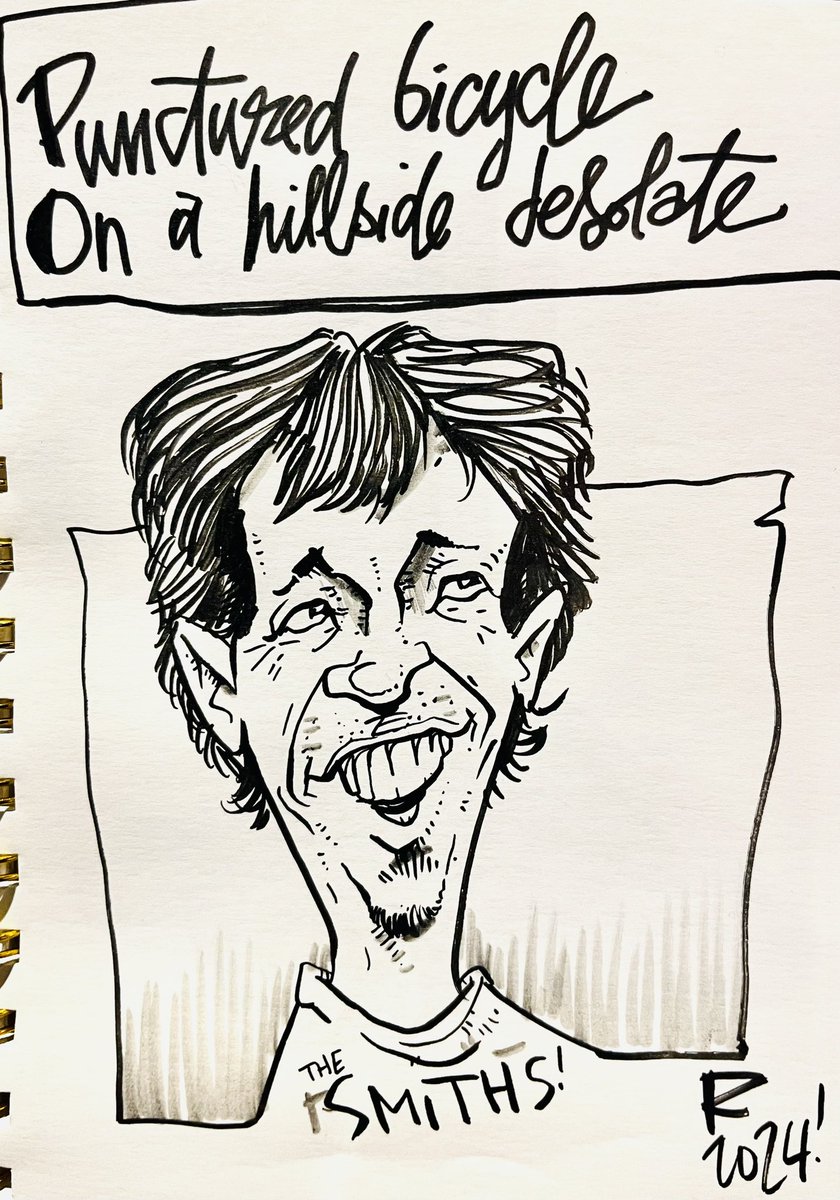 Punctured bicycle
On a hillside desolate
THE
SMiTHS!
R
2024!